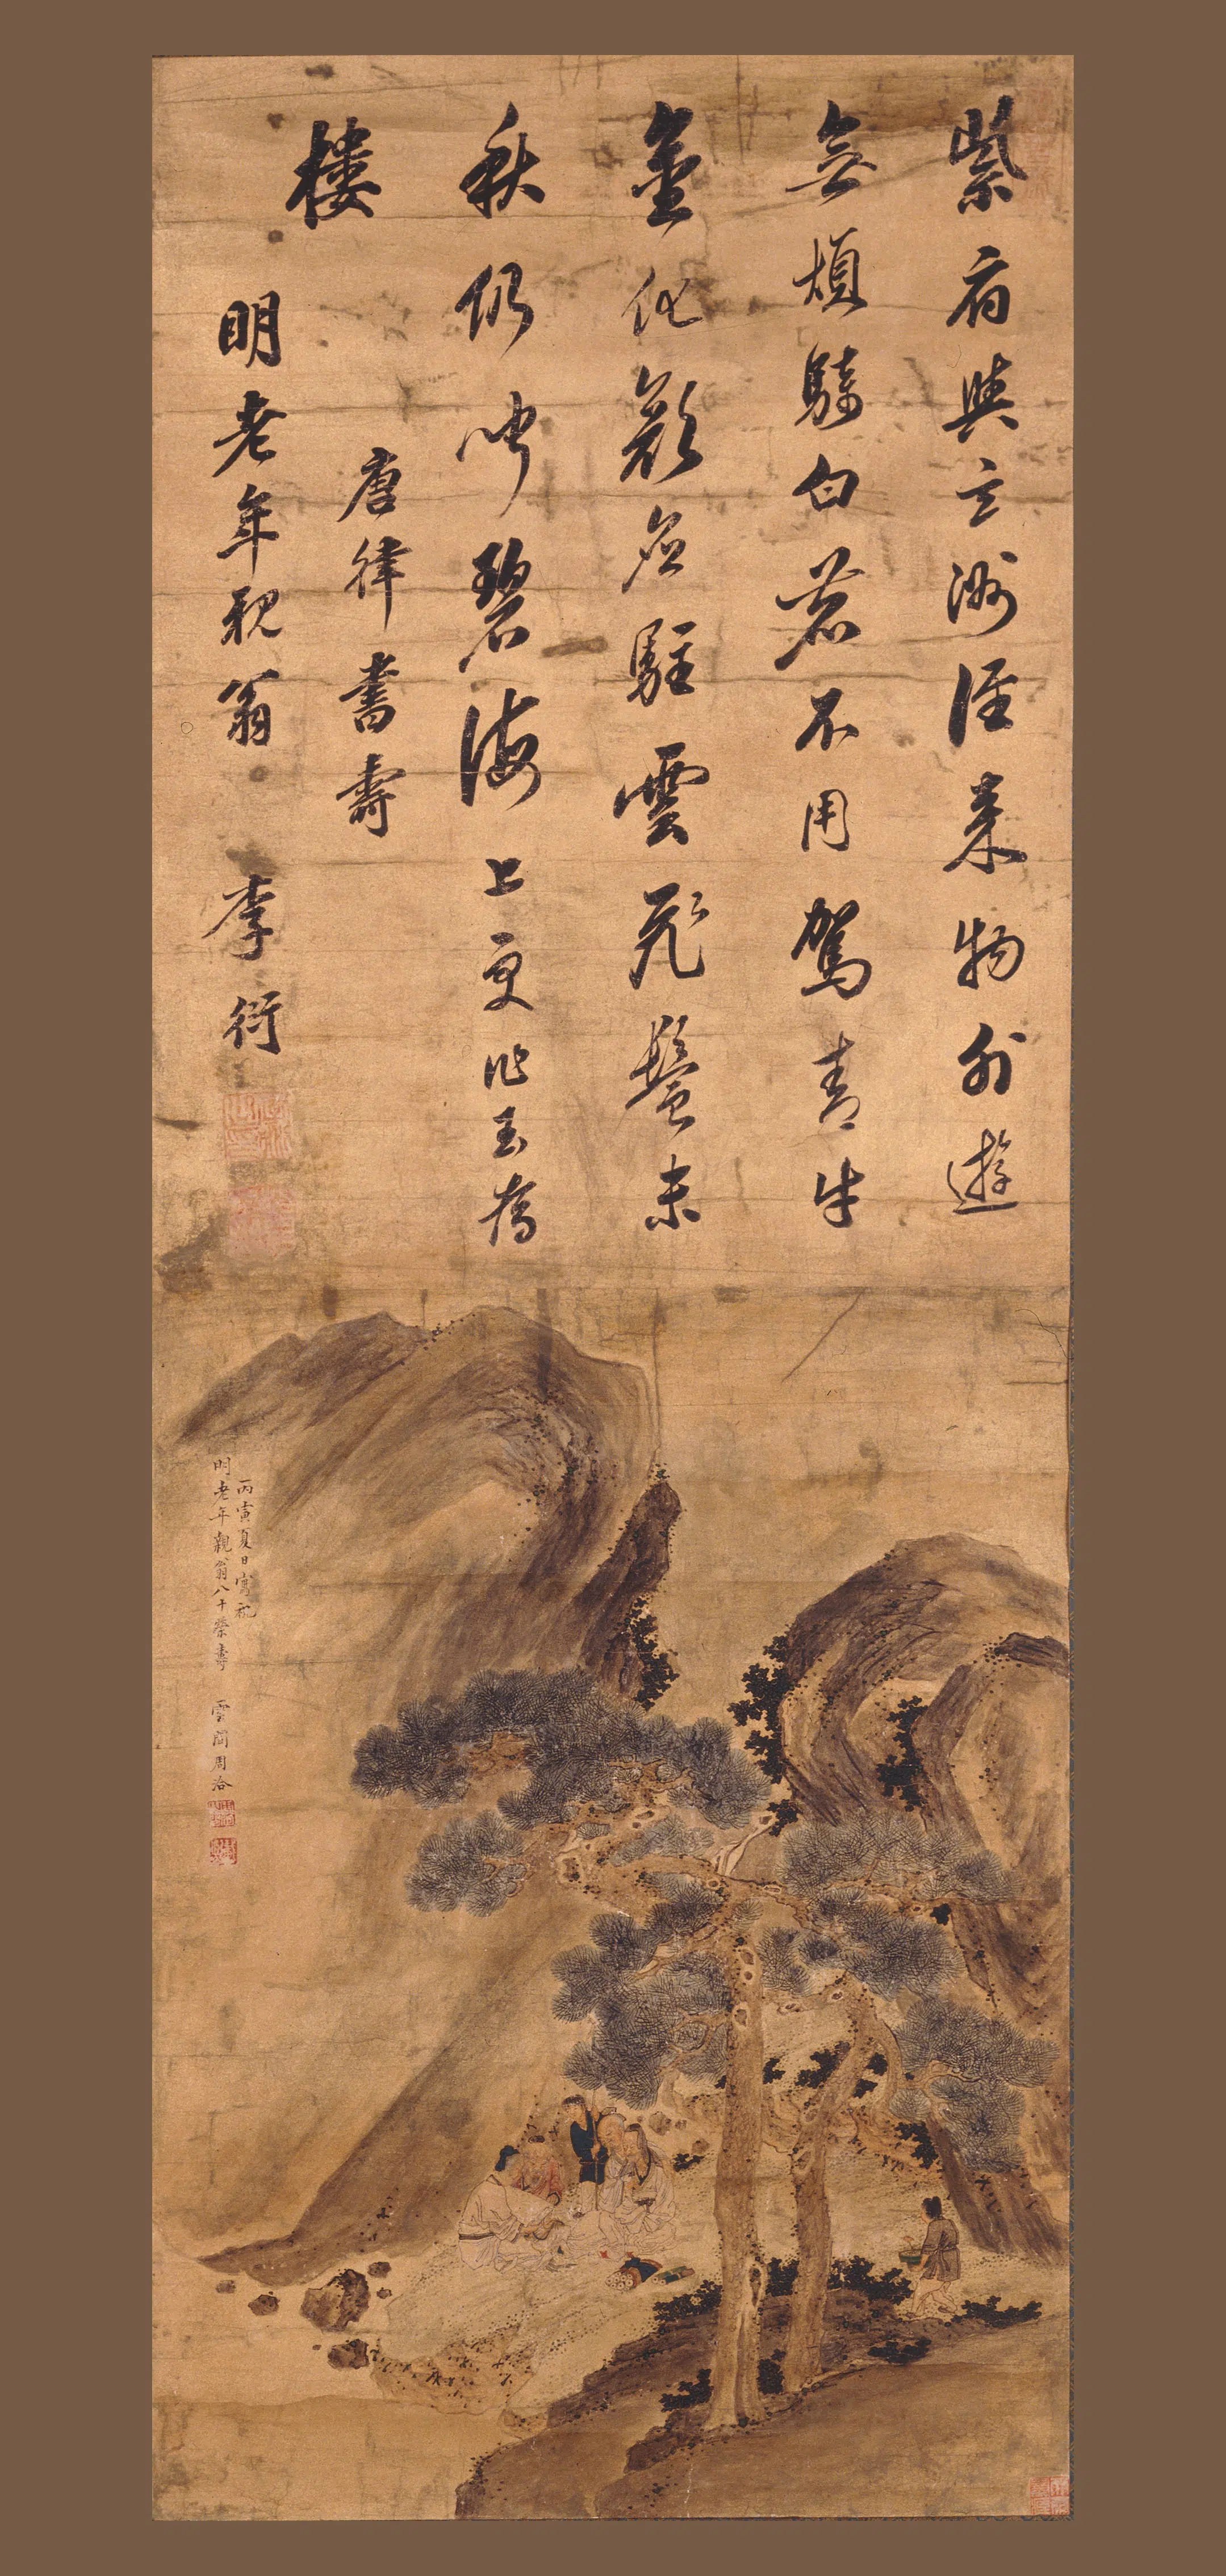 紫府與玄洲誰來物外遊
無煩騎白鹿不用駕青牛
金化顏應駐雲飛鬢未
秋仍聞碧海上更作玉為
樓
唐律書壽
明老年親翁 李衍
丙寅夏日寫祝
明老年親翁八十榮壽 雲間周洽